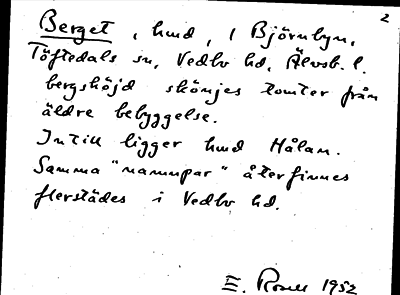 2
Berget, hmd, i Björnbyn,
Töftedals sn, Vedbo hd, Älvsb. l.
bergshöjd skönjes tomter från
äldre bebyggelse.
Intill ligger hmd Hålan.
Samma "namnpar" återfinnes
flerstädes i Vedbo hd.
E. 1952